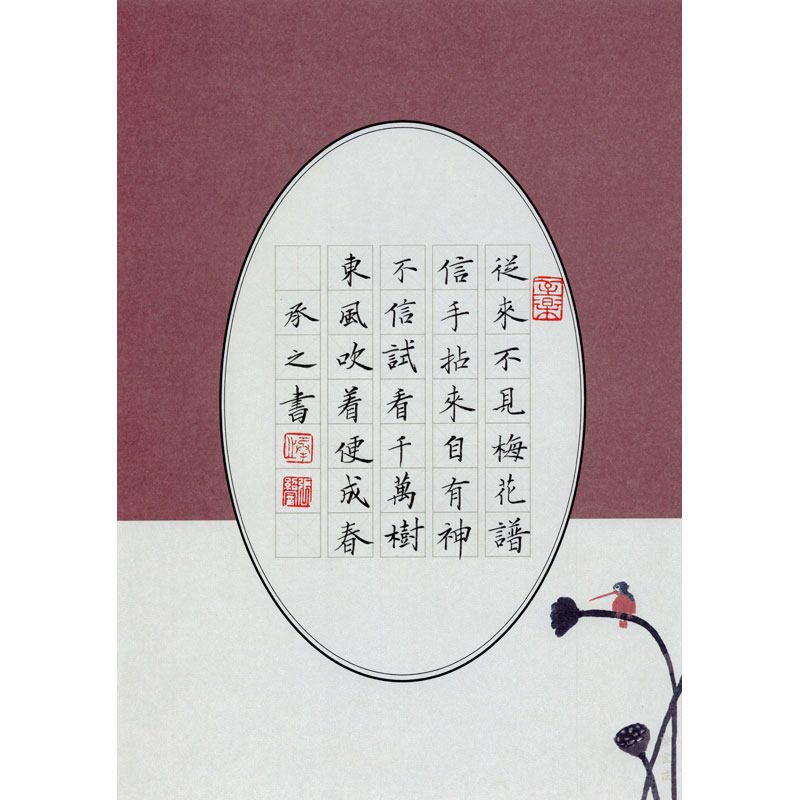 從來不見梅花譜
信手拈來自有神
不信試看千萬樹
東風吹着便成春
承之書